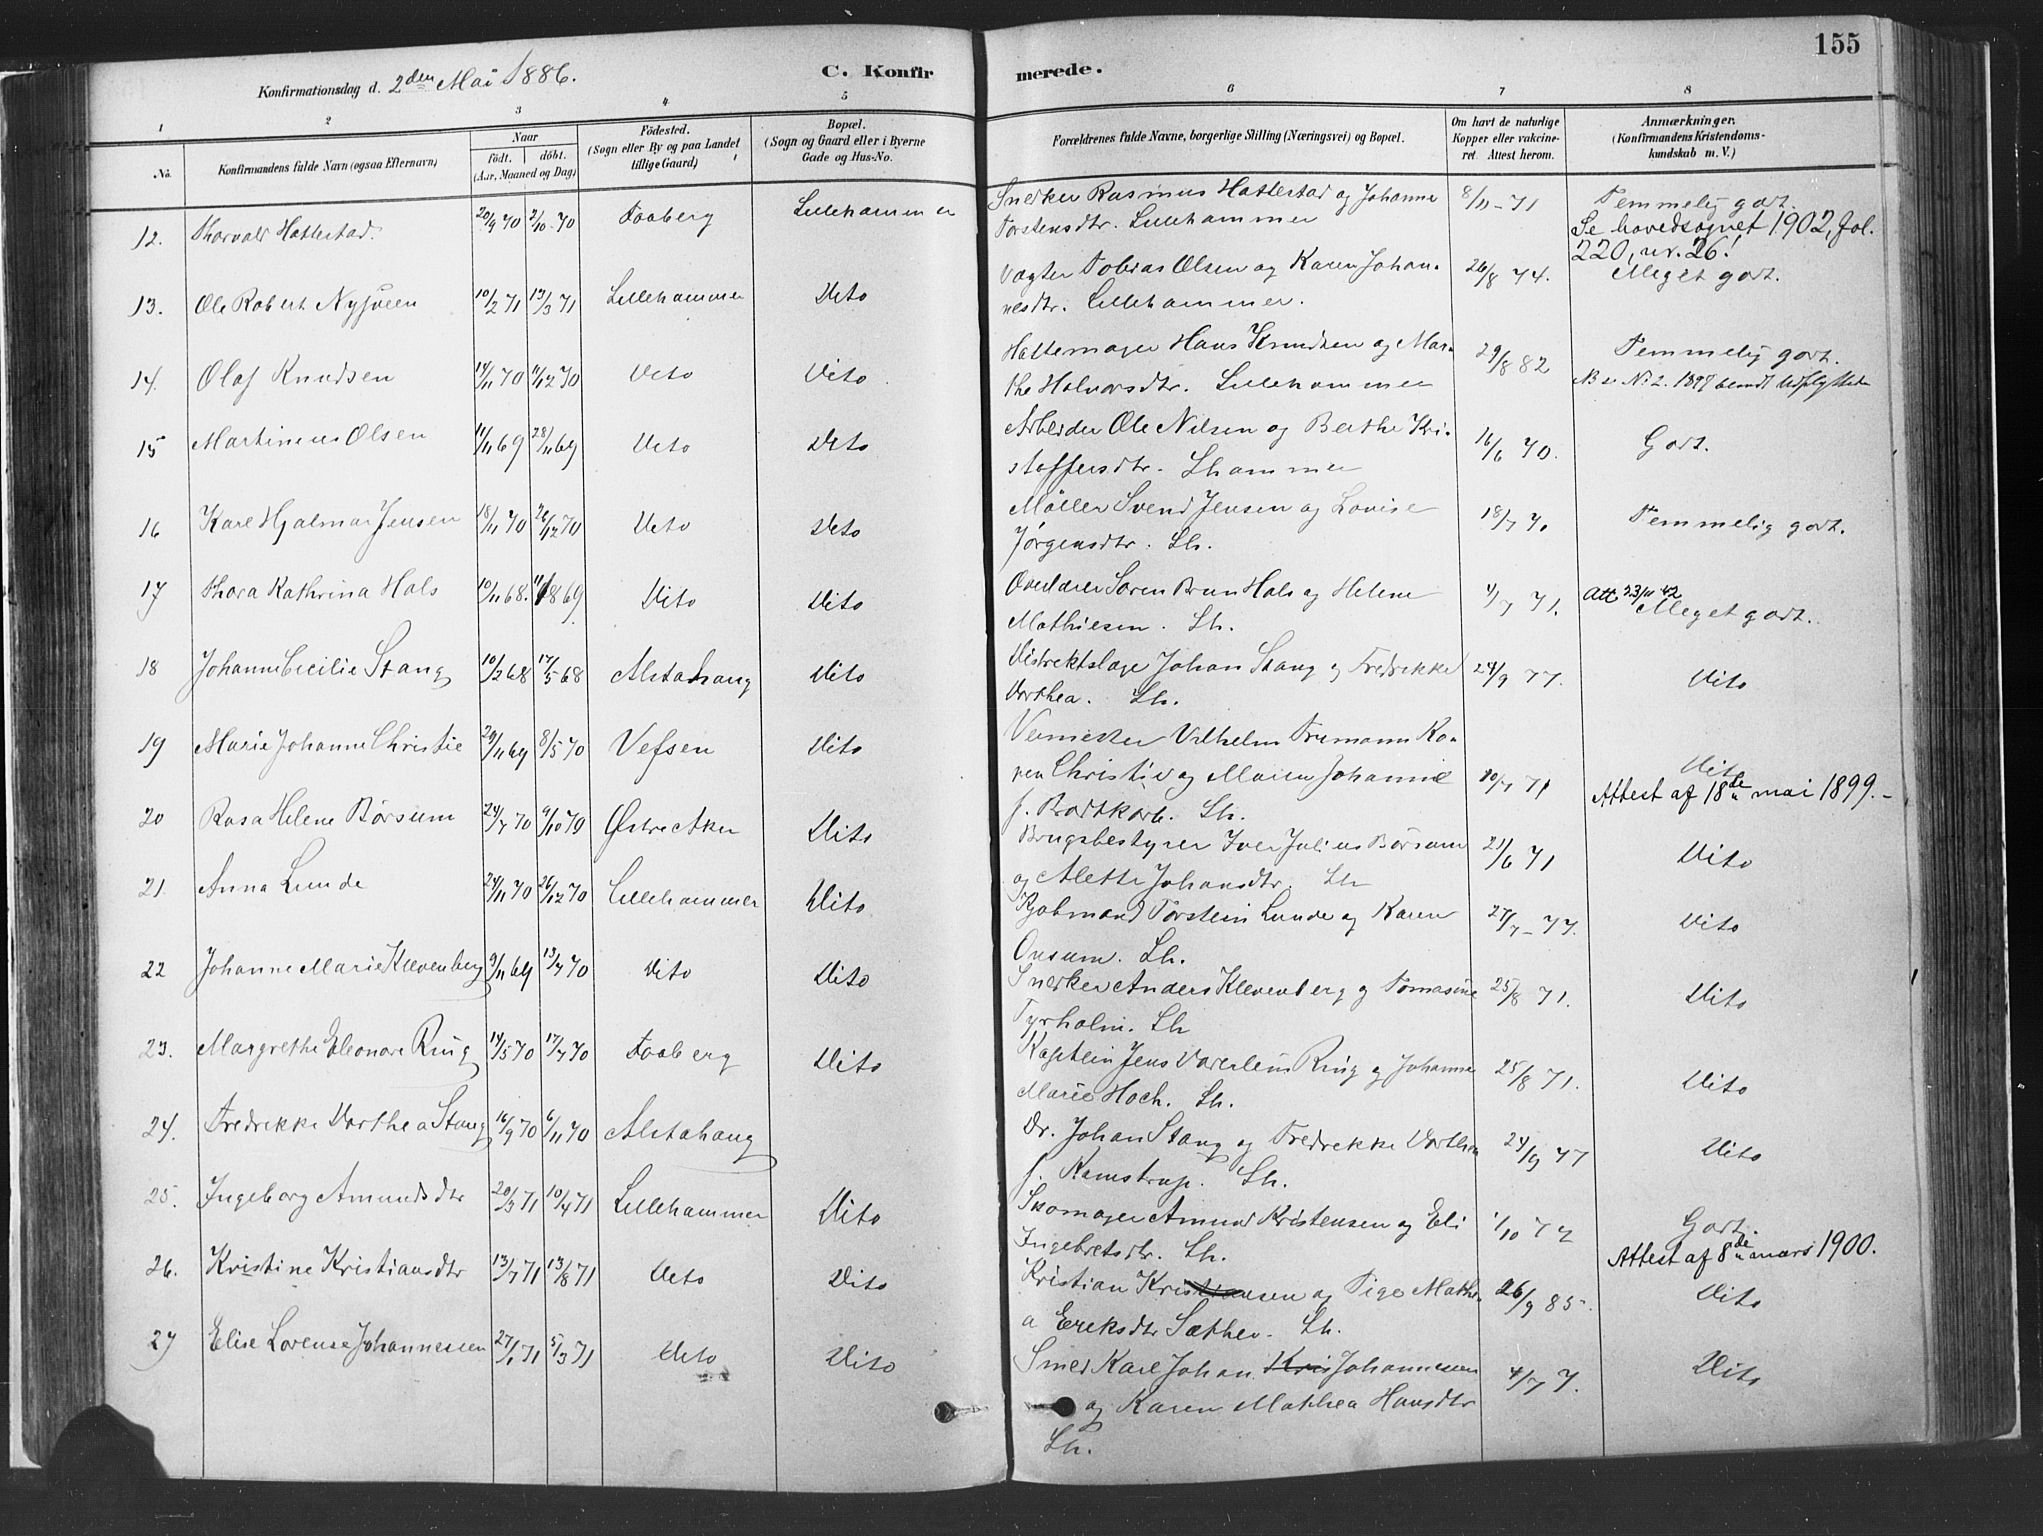 155
Konfirmationsdag d. 2den Mai 1886.
C. Konfirmerede.
1 2 3 4 5 6 7 8
No.
Konfirmandens fulde Navn (ogsaa Efternavn)
Naar
födt. döbt.
(Aar, Maaned og Dag)
Födested.
(Sogn eller By og paa Landet
tillige Gaard)
Bopæl.
(Sogn og Gaard eller i Byerne
Gade og Hus-No.
Forældrenes fulde Navne, borgerlige Stilling (Næringsvei) og Bopæl.
Om havt de naturlige
Kopper eller vakcine-
ret Attest herom.
Anmærkninger.
(Konfirmandens Kristendoms-
kundskab m. V.)
12. Thorvald Hattestad. 20/9 70 2/10 70 Faaberg Lillehammer Snedker Rasmus Hattestad og Johanne 8/11 - 71 Temmelig godt.
Torstensdtr. Lillehammer Se hovedsognet 1902, fol.
220, nr. 26!
13. Ole Robert Nysveen 10/2 71 13/3 71 Lillehammer Dito Vægter Tobias Olsen og Karen Johan- 26/8 74. Meget godt.
nesdtr. Lillehammer.
14. Olaf Knudsen 14/11 70 11/12 70 Dito Dito Hattemager Hans Knudsen og Mar- 29/8 82 Temmelig godt.
the Halvorsdtr. Lillehammer No 2. 1897 blandt Udflyttede
15 Martinius Olsen 11/11 69 28/11 69 Dito Dito Arbeider Ole Nilsen og Berthe Kri- 16/6 70. Godt.
stoffersdtr. Lhammer
16 Karl Hjalmar Jensen 18/11 70 26/12 70 Dito Dito Møller Svend Jensen og Lovise 18/7 71 Temmelig godt.
Jørgensdtr. Lh.
17 Thora Kathrina Hals 10/11 68. 69 Dito Dito Overlærer Søren Brun Hals og Helene 4/7 71. Att 23/11 42
Mathiesen. Lh. Meget godt.
18 Johanne Cicilie Stang 10/2 68 17/5 68 Alstahaug Dito Distriktslæge Johan Stang og Fredrikke 24/9 77. Dito
Dorthea. Lh.
19 Marie Johanne Christie 29/11 69 8/5 70 Vefsen Dito Veimester Vilhelm Frimann Ko-
ren Christie og Maren Johanne 10/7 71 Dito
f. Brodtkorb. Lh. Attest af 18de mai 1899.-
20 Rosa Helene Børsum 24/7 70 9/10 70 Østre Aker Dito Brugsbestyrer Iver Julius Børsum 21/6 71 Dito
og Alette Johansdtr. Lh
21. Anna Lunde 24/11 70 26/12 70 Lillehammer Dito Kjøbmand Torstein Lunde og Karen 27/7 - 77. Dito
Onsum. Lh.
22 Johanne Marie Klevenberg 9/11 69 13/7 70 Dito Dito Snedker Anders Klevenberg og Tomasine 25/8 71. Dito
Tyrholm. Lh
23. Margrethe Eleonore Ring 14/5 70 17/7 70 Faaberg Dito Kaptein Jens Ring og Johanne 25/8 71. Dito
Marie Hoch. Lh.
24. Fredrekke Dorthea Stang 16/9 70 6/11 70 Alstahaug Dr. Johan Stang og Fredrekke Dorthea 24/9 77 Dito
f. Kamstrup. Lh.
25. Ingeborg Amundsdtr 20/3 71 10/4 71 Lillehammer Dito Skomager Amund Kristensen og Eli 1/10 72 Godt.
Ingebretsdtr. Lh. Attest af 8de mars 1900.
26. Kristine Kristiansdtr 13/7 71 13/8 71 Dito Dito Kristian Kristiansen og Pige Mathe- 26/9 85. Dito
a Eriksdtr Sæther. Lh.
27 Elise Lorense Johannessen 27/1 71 5/3 71 Dito Dito Smed Karl Johan Kris Johannessen 4/7 7. Dito
og Karen Mathea Hansdtr
Lh.